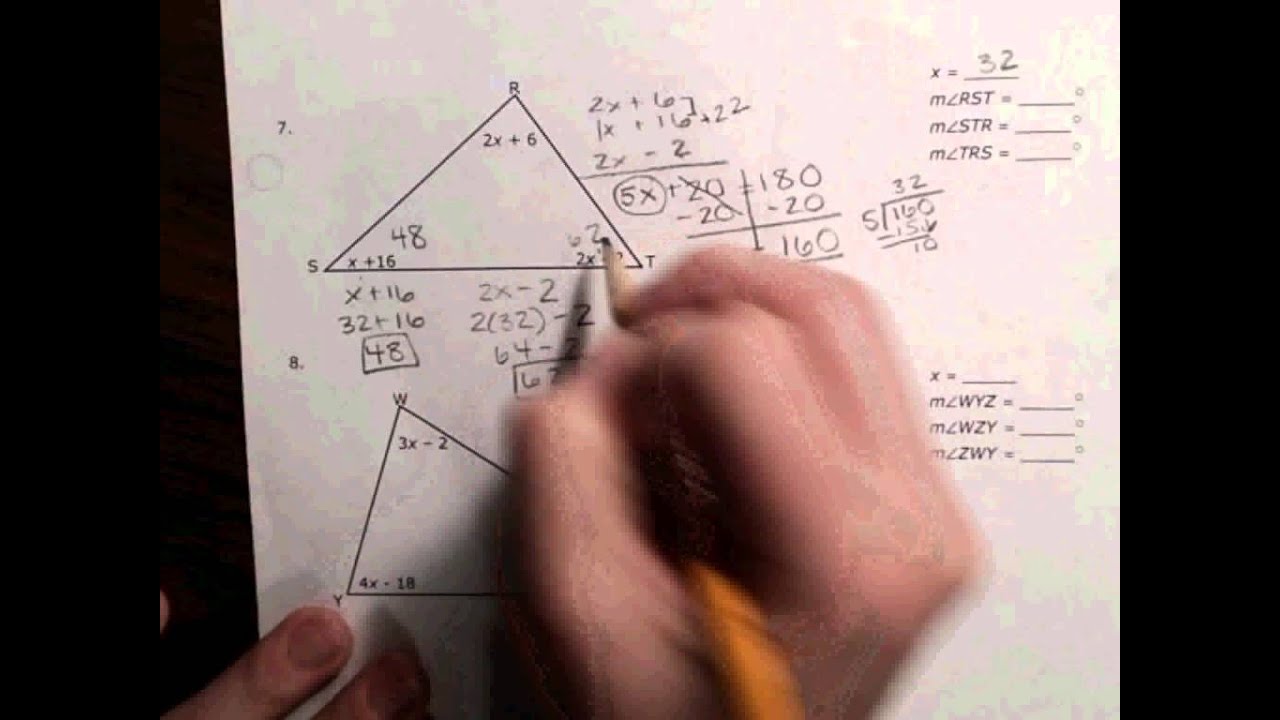 7.
R
2x + 6
48
62
S
x +16
2x
T
2x + 6
1x + 16 +22
2x - 2
5x + 20 = 180
- 20 - 20
160
32
5 160
- 15
10
x = 32
m∠RST = ____°
m∠STR = ____°
m∠TRS = ____°
x+16
32+16
48
2x - 2
2(32) - 2
64 -
8.
W
3x - 2
4x - 18
Y
x = ____
m∠WYZ = ____°
m∠WZY = ____°
m∠ZWY = ____°